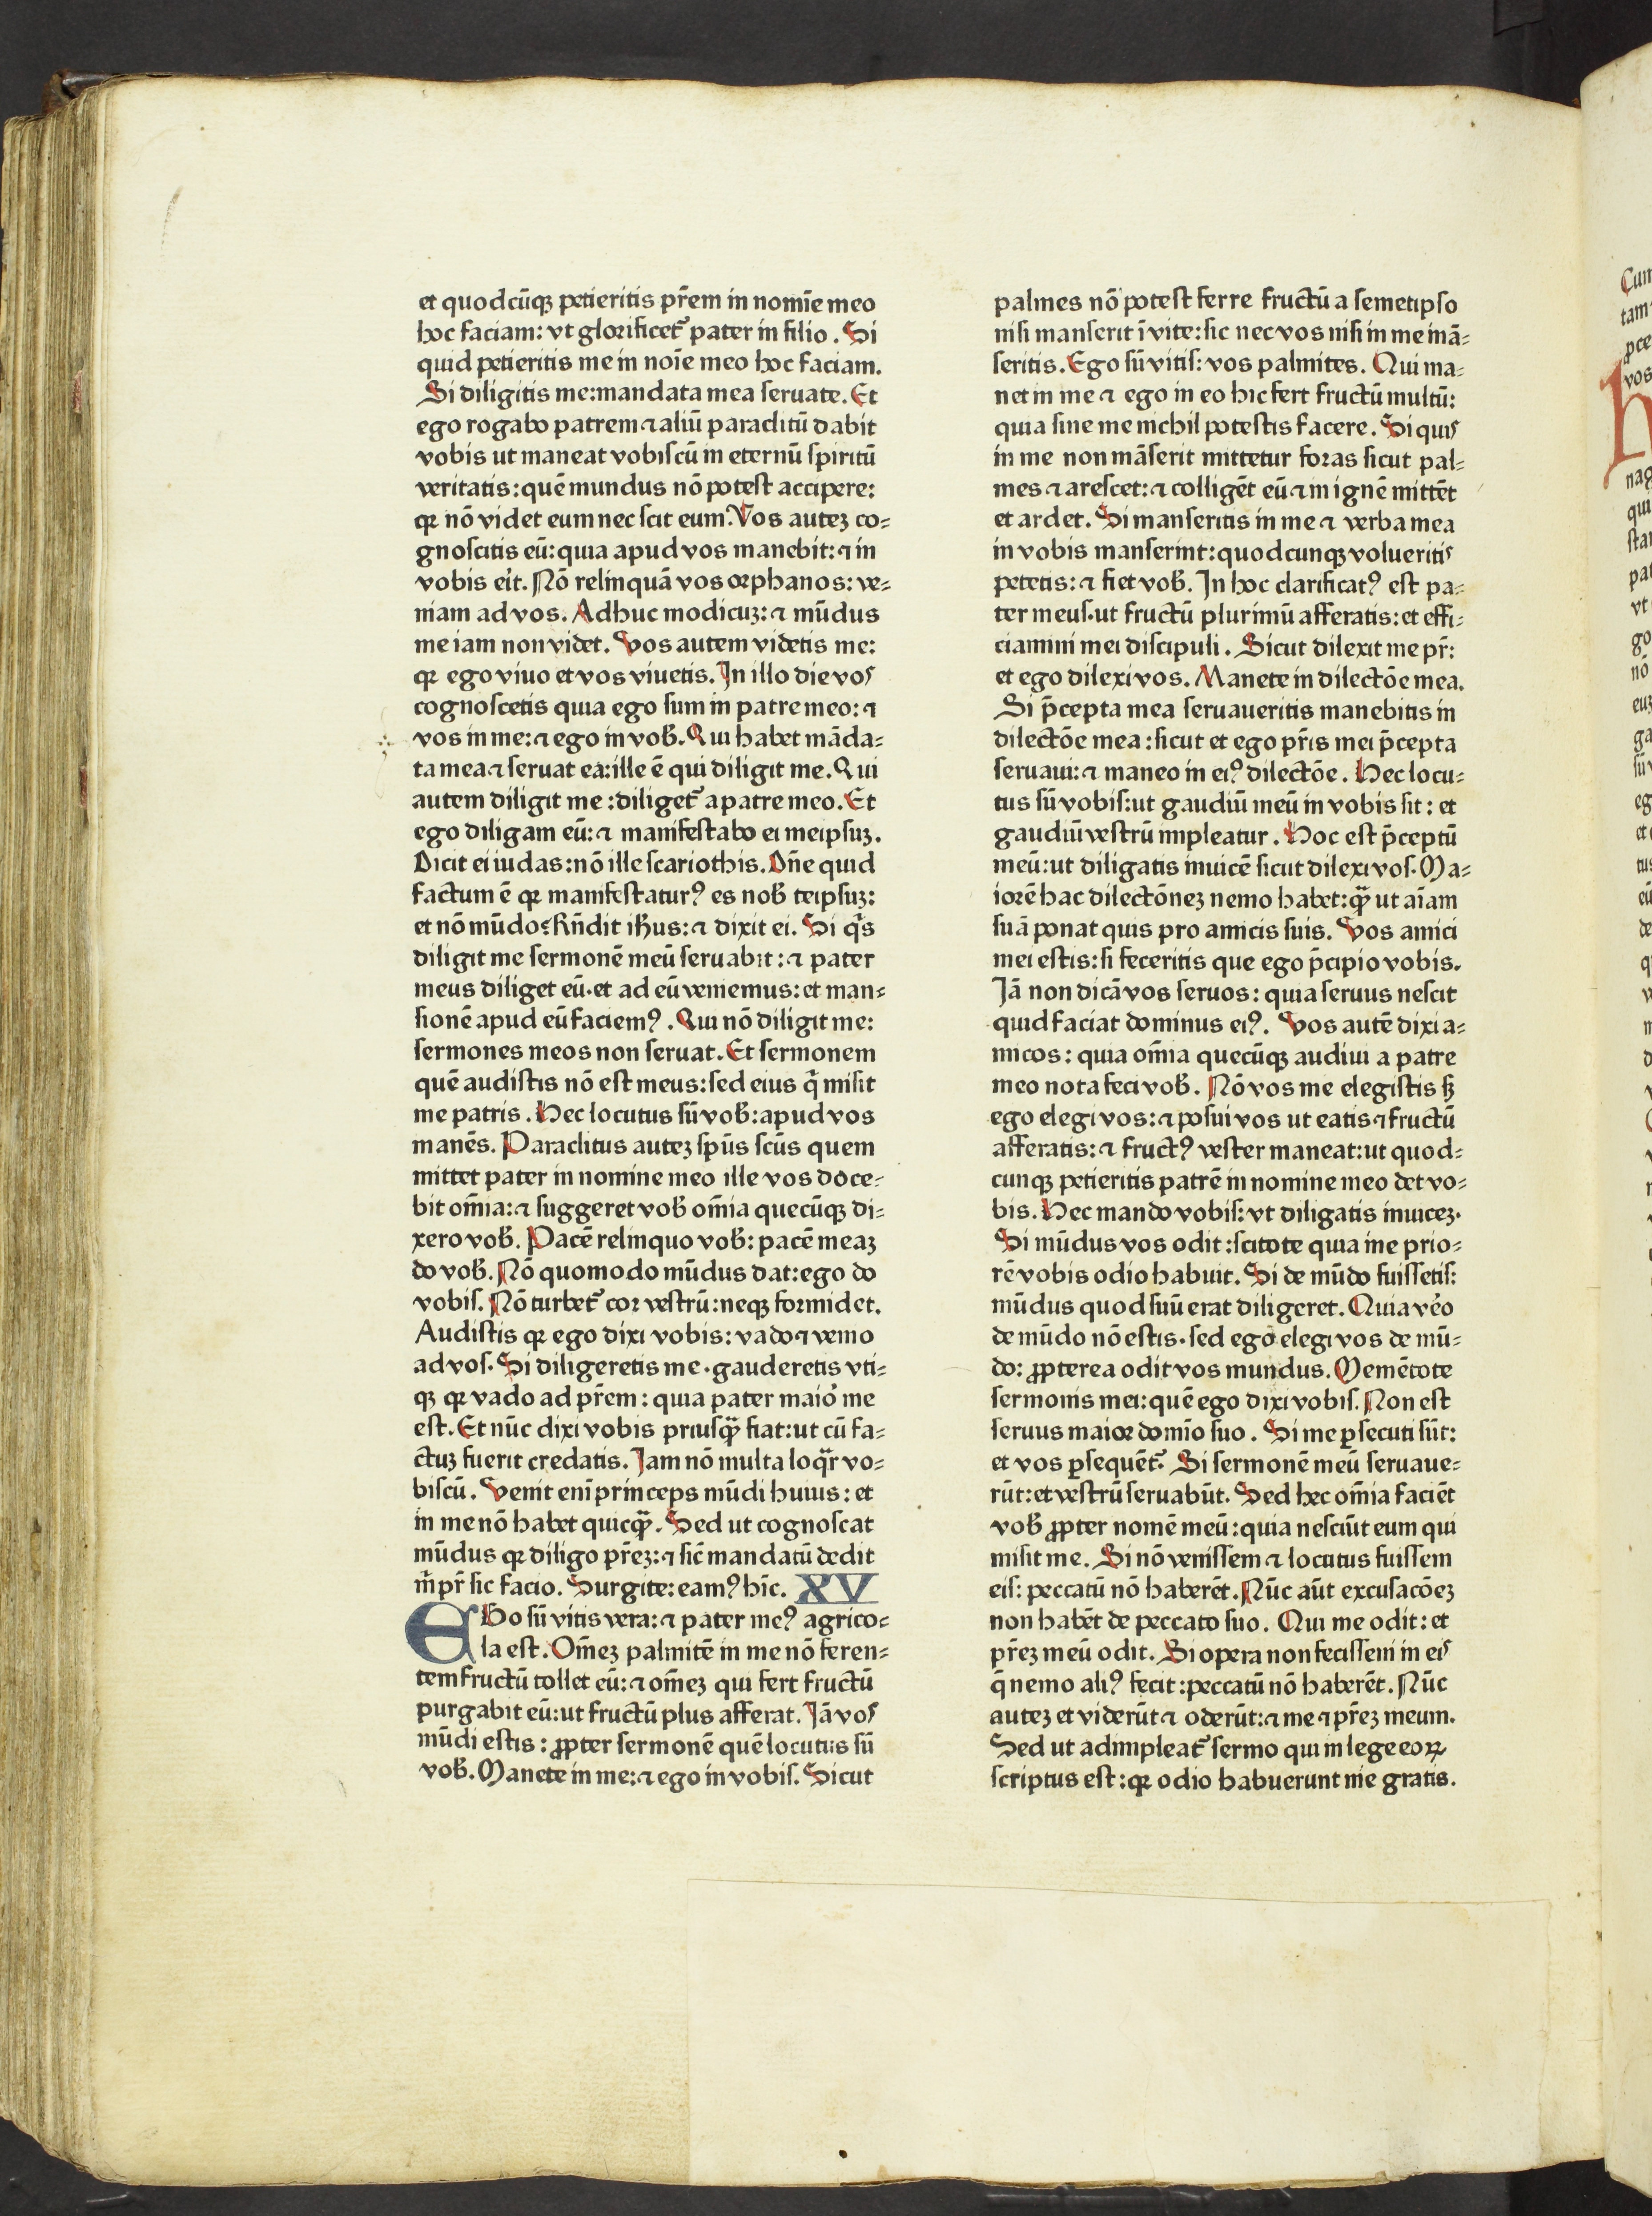 et quodcūqꝫ petieritis pr̄em in nomīe meo
hoc faciam: vt glorificet᷑ pater in filio. Si
quid petieritis me in noīe meo hoc faciam.
Si diligitis me: mandata mea seruate. Et
ego rogabo patrem ⁊ aliū paraclitū dabit
vobis ut maneat vobiscū in eternū spiritū
veritatis: quē mundus nō potest accipere:
qꝛ nō videt eum nec scit eum. Vos auteꝫ co⸗
gnoscitis eū: quia apud vos manebit: ⁊ in
vobis eīt. Nō relinquā vos orphanos: ve⸗
niam ad vos. Adhuc modicuꝫ: ⁊ mūdus
me iam non videt. Vos autem videtis me:
qꝛ ego viuo et vos viuetis. In illo die vos
cognoscetis quia ego sum in patre meo: ⁊
vos in me: ⁊ ego in vob̄. Qui habet māda⸗
ta mea ⁊ seruat ea: ille ē qui diligit me. Qui
autem diligit me: diliget᷑ a patre meo. Et
ego diligam eū: ⁊ manifestabo ei meipsuꝫ.
Dicit ei iudas: nō ille scariothis. Dn̄e quid
factum ē qꝛ manifestaturꝰ es nob̄ teipsuꝫ:
et nō mūdo: Rn̄dit ih̄us: ⁊ dixit ei. Si qͥs
diligit me sermonē meū seruabit: ⁊ pater
meus diliget eū. et ad eū veniemus: et man⸗
sionē apud eū faciemꝰ. Qui nō diligit me:
sermones meos non seruat. Et sermonem
quē audistis nō est meus: sed eius qͥ misit
me patris. Hec locutus sū vob̄: apud vos
manēs. Paraclitus auteꝫ sp̄us sc̄us quem
mittet pater in nomine meo ille vos doce⸗
bit om̄ia: ⁊ suggeret vob̄ om̄ia quecūqꝫ di⸗
xero vob̄. Pacē relinquo vob̄: pacē meaꝫ
do vob̄. Nō quomodo mūdus dat: ego do
vobis. Nō turbet᷑ cor vestrū: neqꝫ formidet.
Audistis qꝛ ego dixi vobis: vado ⁊ venio
ad vos. Si diligeretis me. gauderetis vti⸗
qꝫ qꝛ vado ad pr̄em: quia pater maio᷑ me
est. Et nūc dixi vobis priusqꝫ̄ fiat: ut cū fa⸗
ctuꝫ fuerit credatis. Iam nō multa loqr̄ vo⸗
biscū. Venit eni princeps mūdi huius: et
in me nō habet quicqꝫ̄. Sed ut cognoscat
mūdus qꝛ diligo pr̄eꝫ: ⁊ sic̄ mandatū dedit
m̄ pr̄ sic facio. Surgite: eamꝰ hīc. XV
EGo sū vitis vera: ⁊ pater meꝰ agrico⸗
la est. Om̄eꝫ palmitē in me nō feren⸗
tem fructū tollet eū: ⁊ om̄eꝫ qui fert fructū
purgabit eū: ut fructū plus afferat. Iā vos
mūdi estis: ꝓpter sermonē quē locutus sū
vob̄. Manete in me: ⁊ ego in vobis. Sicut
palmes nō potest ferre fructū a semetipso
nisi manserit ī vite: sic nec vos nisi in me mā⸗
seritis. Ego sū vitis: vos palmites. Qui ma⸗
net in me ⁊ ego in eo hic fert fructū multū:
quia sine me nichil potestis facere. Si quis
in me non māserit mittetur foras sicut pal⸗
mes ⁊ arescet: ⁊ colligēt eū ⁊ in ignē mittēt
et ardet. Si manseritis in me ⁊ verba mea
in vobis manserint: quodcunqꝫ volueritis
petetis: ⁊ fiet vob̄. In hoc clarificatꝰ est pa⸗
ter meus. ut fructū plurimū afferatis: et effi⸗
ciamini mei discipuli. Sicut dilexit me pr̄:
et ego dilexi vos. Manete in dilectōe mea.
Si p̄cepta mea seruaueritis manebitis in
dilectōe mea: sicut et ego pr̄is mei p̄cepta
seruaui: ⁊ maneo in eiꝰ dilectōe. Hec locu⸗
tus sū vobis: ut gaudiū meū in vobis sit: et
gaudiū vestrū impleatur. Hoc est p̄ceptū
meū: ut diligatis inuicē sicut dilexi vos. Ma⸗
iorē hac dilectōneꝫ nemo habet: qꝫ̄ ut aīam
suā ponat quis pro amicis suis. Vos amici
mei estis: si feceritis que ego p̄cipio vobis.
Iā non dicā vos seruos: quia seruus nescit
quid faciat dominus eiꝰ. Vos autē dixi a⸗
micos: quia om̄ia quecūqꝫ audiui a patre
meo nota feci vob̄. Nō vos me elegistis sꝫ
ego elegi vos: ⁊ posui vos ut eatis ⁊ fructū
afferatis: ⁊ fructꝰ vester maneat: ut quod⸗
cunqꝫ petieritis patrē in nomine meo det vo⸗
bis. Hec mando vobis: vt diligatis inuiceꝫ.
Si mūdus vos odit: scitote quia me prio⸗
rē vobis odio habuit. Si de mūdo fuissetis:
mūdus quod suū erat diligeret. Quia ve᷑o
de mūdo nō estis. sed ego elegi vos de mū⸗
do: ꝓpterea odit vos mundus. Memētote
sermonis mei: quē ego dixi vobis. Non est
seruus maior domīo suo. Si me ꝑsecuti sūt:
et vos ꝑsequēt᷑. Si sermonē meū seruaue⸗
rūt: et vestrū seruabūt. Sed hec om̄ia faciēt
vob̄ ꝓpter nomē meū: quia nesciūt eum qui
misit me. Si nō venissem ⁊ locutus fuissem
eis: peccatū nō haberēt. Nūc aūt excusacōeꝫ
non habēt de peccato suo. Qui me odit: et
pr̄eꝫ meū odit. Si opera non fecissem in eis
q̄ nemo aliꝰ fecit: peccatū nō haberēt. Nūc
auteꝫ et viderūt ⁊ oderūt: ⁊ me ⁊ pr̄eꝫ meum.
Sed ut adimpleat᷑ sermo qui in lege eoꝝ
scriptus est: qꝛ odio habuerunt me gratis.